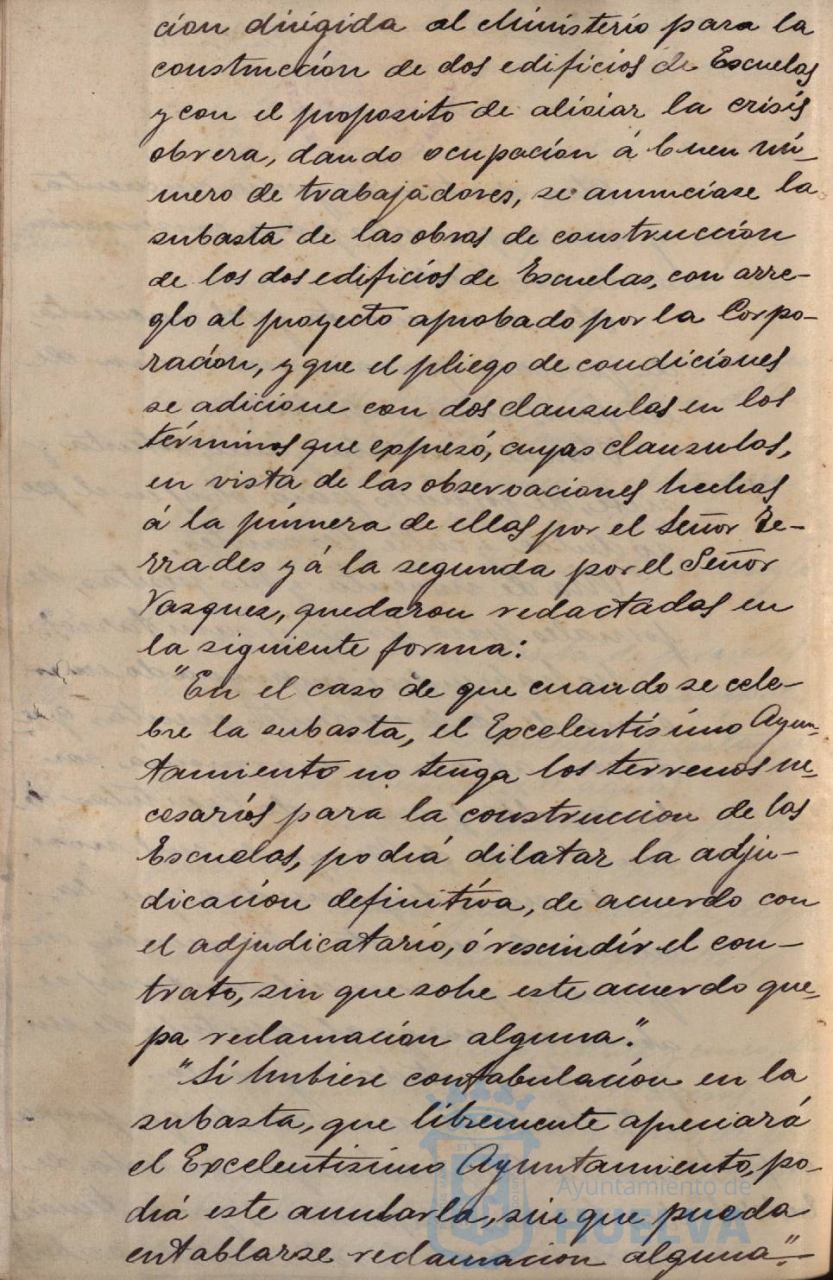 cion dirigida al Ministerio para la
construccion de dos edificios de Escuelas
y con el proposito de aliciar la crisis
obrera, dando ocupacion á buen nú-
mero de trabajadores, se anunciase la
subasta de las obras de construccion
de los dos edificios de Escuelas, con arre-
glo al proyecto aprobado por la Corpo-
racion, y que el pliego de condiciones
se adicione con dos clausulas en los
términos que expresó, cuyas clausulas,
en vista de las observaciones hechas
á la primera de ellas por el Señor Te-
rrades y á la segunda por el Señor
Vazquez, quedaron redactadas en
la siguiente forma:
"En el caso de que cuando se cele-
bre la subasta, el Excelentísimo Ayun-
tamiento no tenga los terrenos ne-
cesarios para la construccion de las
Escuelas, podrá dilatar la adju-
dicacion definitiva, de acuerdo con
el adjudicatario, ó rescindir el con-
trato, sin que sobe este acuerdo que-
pa reclamacion alguna".
"Si hubiere confabulacion en la
subasta, que libremente apreciará
el Excelentisimo Ayuntamiento, po-
drá este anularla, sin que pueda
entablarse reclamacion alguna".-
Ayuntamiento de
HUELVA